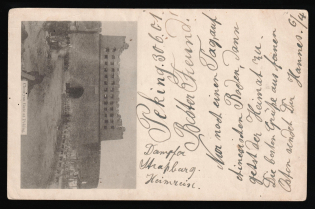 Peking 30.6.01
Bester Freund!
Nur noch einen Tag auf
chinesischen Boden, dann
geht der Heimat zu.
Die besten Grüße aus fernen
Osten sendet Dir
Hannes.
Dampfer
Straßburg.
Heimreise.